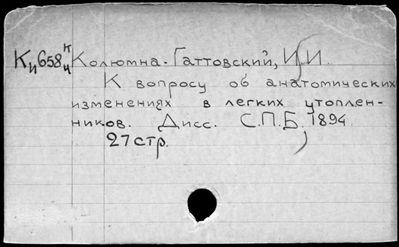 Ки658 К/ч Колюмна-Гаттовский, И.И.
К вопросу об анатомических
изменениях в легких утоплен-
ников. Дисс. С.П.Б, 1894.
27 стр.